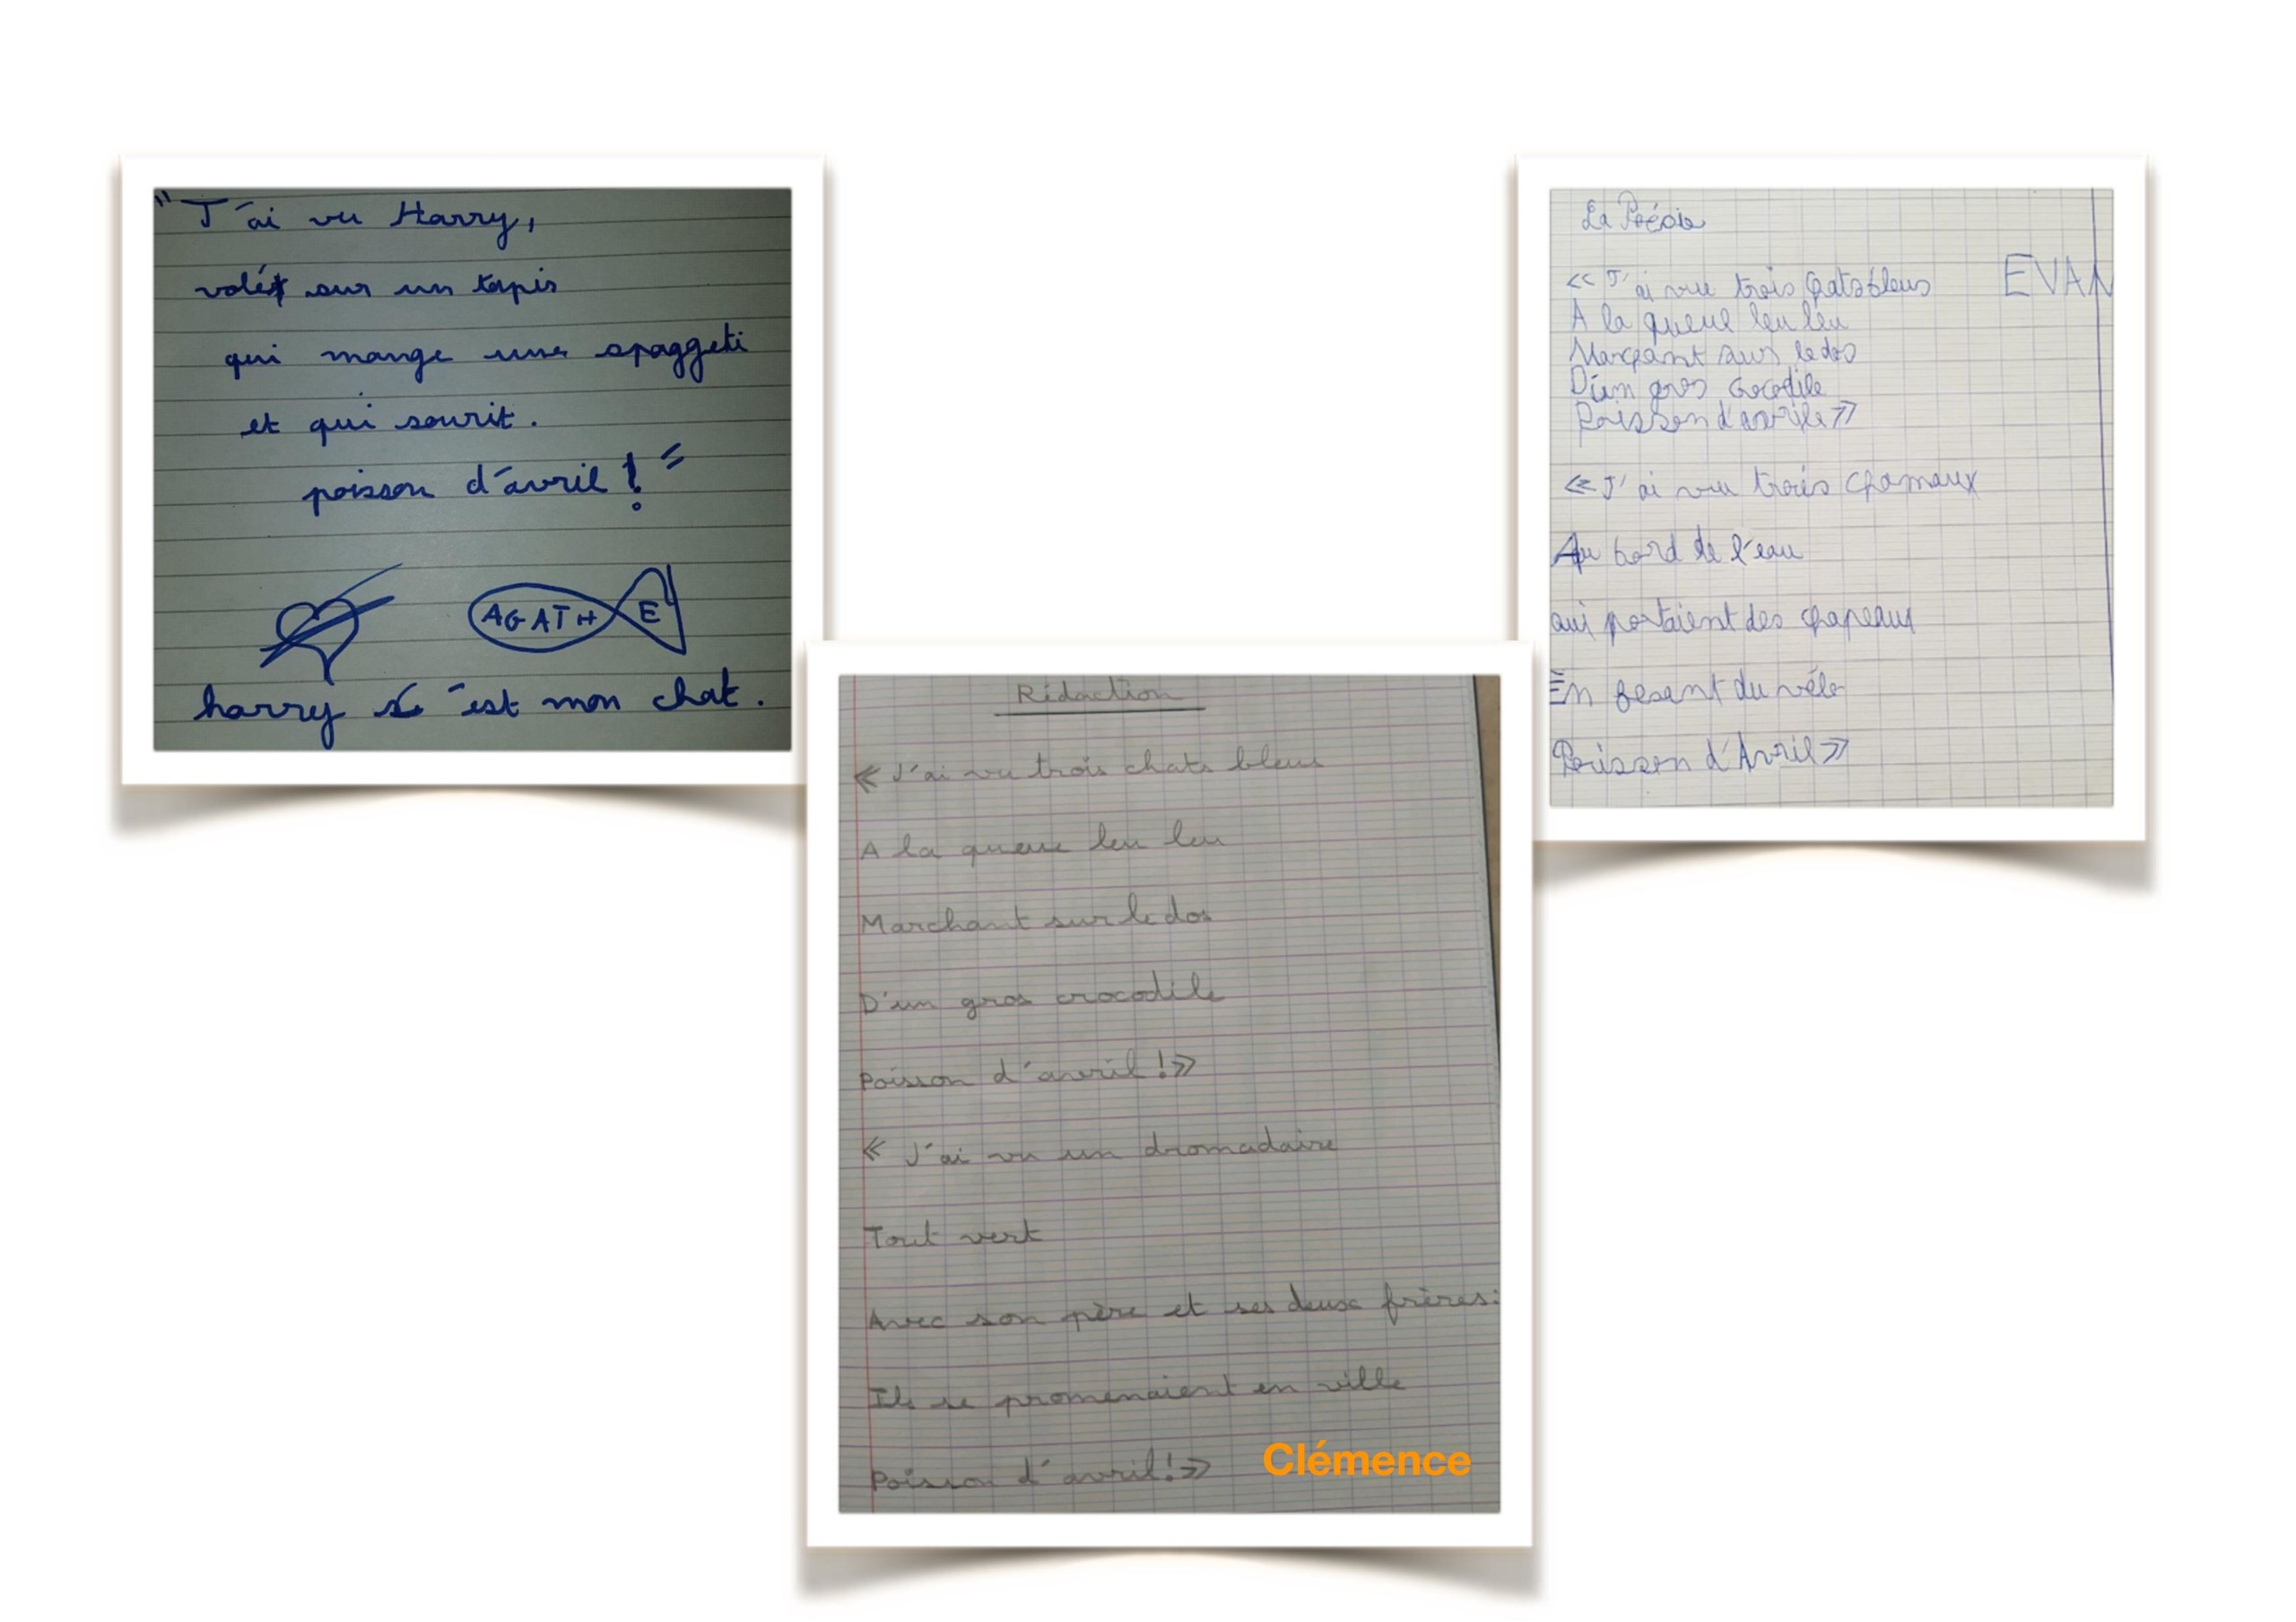 " J'ai vu Harry,
volé sur un tapis
qui mange une spaggeti
et qui sourit.
poisson d'avril ! "
AGATHE
harry c'est mon chat.
La Poésie
EVAN
<< J'ai vu trois chats bleus
A la queue leu leu
Marchant sur le dos
D'un gros crocodile
Poisson d'avrile >>
<< J'ai vu trois chameaux
Au bord de l'eau
qui portaient des chapeaux
En fesant du vélo
Poisson d'Avril >>
Rédaction
<< J'ai vu trois chats bleus
A la queue leu leu
Marchant sur le dos
D'un gros crocodile
Poisson d'avril ! >>
<< J'ai vu un dromadaire
Tout vert
Avec son père et ses deux frères:
Ils se promenaient en ville
Poisson d'avril ! >>
Clémence